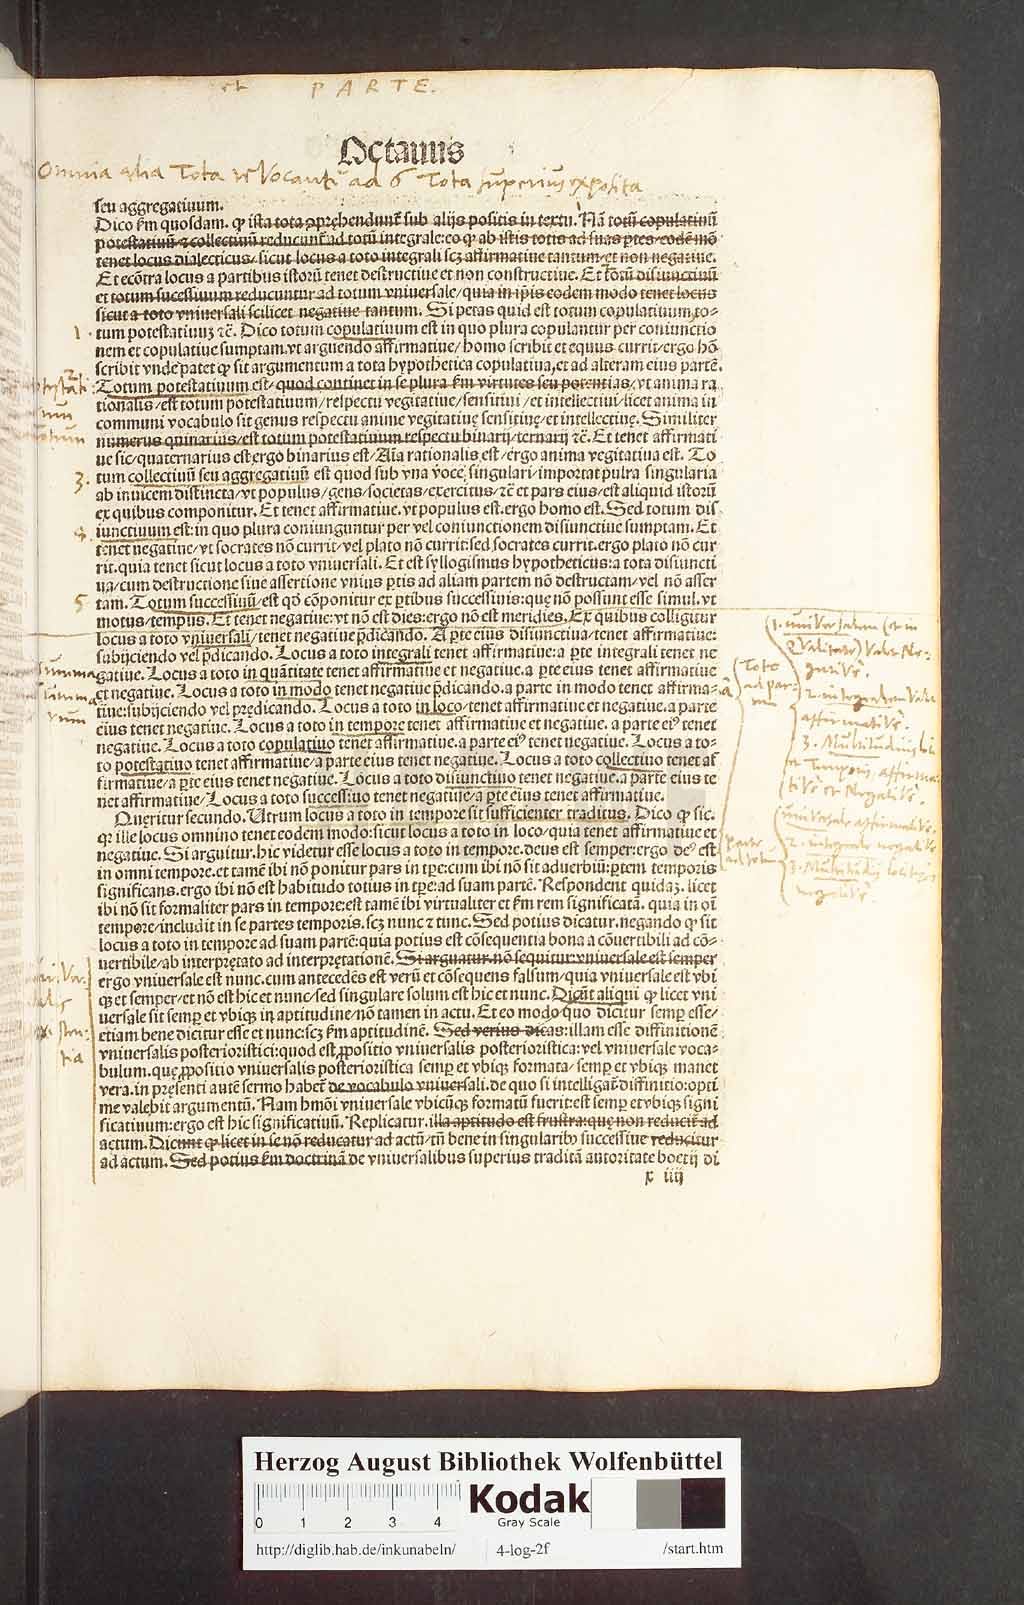 PARTE.
Octauus
Omnia alia Tota re vocantur ad 6 Tota superius exposita
seu aggregatiuum.
Dico km̃ quosdam. ꝙ ista tota ꝯprehendunt᷑ sub alijs positis in textu. Nã totũ copulatiuũ
potestatiuũ ⁊ collectiuũ reducunt᷑ ad totũ integrale: eo ꝙ ab istis totis ad suas ꝑtes eodẽ mõ
tenet locus dialecticus/ sicut locus a toto integrali scꝫ affirmatiue tantum/ et non negatiue.
Et ecõtra locus a partibus istorũ tenet destructiue et non constructiue. Et totũ disiunctiuũ
et totum sucessiuum reducuntur ad totum vniuersale/ quia in ip̃is eodem modo tenet locus
sicut a toto vniuersali scilicet negatiue tantum. Si petas quid est totum copulatiuum, to-
tum potestatiuuꝫ ⁊c̃. Dico totum copulatiuum est in quo plura copulantur per coniunctio
nem et copulatiue sumptam. vt arguendo affirmatiue/ homo scribit et equus currit/ ergo hõ
scribit vnde patet ꝙ sit argumentum a tota hypothetica copulatiua, et ad alteram eius partẽ.
Totum potestatiuum est/ quod continet in se plura km̃ virtutes seu potentias/ vt anima ra
tionalis/ est totum potestatiuum/ respectu vegitatiue/ sensitiui/ et intellectiui/ licet anima in
communi vocabulo sit genus respectu anime vegitatiuę sensitiuę/ et intellectiuę. Similiter
numerus quinarius/ est totum potestatiuum respectu binarij/ ternarij ⁊c̃. Et tenet affirmati
ue sic/ quaternarius est ergo binarius est/ Aĩa rationalis est/ ergo anima vegitatiua est. To
tum collectiuũ seu aggregatiuũ est quod sub vna voce singulari/ importat pulra singularia
ab inuicem distincta/ vt populus/ gens/ societas/ exercitus/ ⁊c̃ et pars eius/ est aliquid istorũ
ex quibus componitur. Et tenet affirmatiue. vt populus est. ergo homo est. Sed totum dis
iunctiuum est: in quo plura coniunguntur per vel coniunctionem disiunctiue sumptam. Et
tenet negatine/ vt socrates nõ currit/ vel plato nõ currit: sed socrates currit. ergo plato nõ cur
rit. quia tenet sicut locus a toto vniuersali. Et est syllogismus hypotheticus: a tota disiuncti
ua/ cum destructione siue assertione vnius ꝑtis ad aliam partem nõ destructam/ vel nõ asser
tam. Totum successiuũ/ est qð cõponitur ex ꝑtibus successiuis: quę nõ possunt esse simul. vt
motus/ tempus. Et tenet negatiue: vt nõ est dies: ergo nõ est meridies. Ex quibus colligitur
locus a toto vniuersali/ tenet negatiue p̃dicando. A ꝑte eius disiunctiua/ tenet affirmatiue:
subijciendo vel p̃dicando. Locus a toto integrali tenet affirmatiue: a ꝑte integrali tenet ne
gatiue. Locus a toto in quãtitate tenet affirmatiue et negatiue. a ꝑte eius tenet affirmatiue
et negatiue. Locus a toto in modo tenet negatiue p̃dicando. a parte in modo tenet affirma-
tiue: subijciendo vel predicando. Locus a toto in loco/ tenet affirmatiue et negatiue. a parte
eius tenet negatiue. Locus a toto in tempore tenet affirmatiue et negatiue. a parte eiꝰ tenet
negatiue. Locus a toto copulatiuo tenet affirmatiue. a parte eiꝰ tenet negatiue. Locus a to-
to potestatiuo tenet affirmatiue/ a parte eius tenet negatiue. Locus a toto collectiuo tenet af
firmatiue/ a ꝑte eius tenet negatiue. Locus a toto disiunctiuo tenet negatiue. a parte eius te
net affirmatiue/ Locus a toto successiuo tenet negatiue/ a ꝑte eius tenet affirmatiue.
Queritur secundo. Utrum locus a toto in tempore sit sufficienter traditus. Dico ꝙ sic.
ꝙ ille locus omnino tenet eodem modo: sicut locus a toto in loco/ quia tenet affirmatiue et
negatiue. Si arguitur. hic videtur esse locus a toto in tempore. deus est semper: ergo deꝰ est
in omni tempore. et tamẽ ibi nõ ponitur pars in tp̃e: cum ibi nõ sit aduerbiũ: ꝑtem temporis
significans. ergo ibi nõ est habitudo totius in tp̃e: ad suam partẽ. Respondent quidaꝫ. licet
ibi nõ sit formaliter pars in tempore: est tamẽ ibi virtualiter et km̃ rem significatã. quia in oĩ
tempore/ includit in se partes temporis. scꝫ nunc ⁊ tunc. Sed potius dicatur. negando ꝙ sit
locus a toto in tempore ad suam partẽ: quia potius est cõsequentia bona a cõuertibili ad cõ-
uertibile/ ab interpretato ad interpretationẽ. Si arguatur. nõ sequitur vniuersale est semper
ergo vniuersale est nunc. cum antecedẽs est verũ et cõsequens falsum/ quia vniuersale est vbi
qꝫ et semper/ et nõ est hic et nunc/ sed singulare solum est hic et nunc. Dicũt aliqui ꝙ licet vni
uersale sit semꝑ et vbiqꝫ in aptitudine/ nõ tamen in actu. Et eo modo quo dicitur semꝑ esse/
etiam bene dicitur esse et nunc: scꝫ km̃ aptitudinẽ. Sed verius dicas: illam esse diffinitionẽ
vniuersalis posterioristici: quod est ꝓpositio vniuersalis posterioristica: vel vniuersale voca-
bulum. quę ꝓpositio vniuersalis posterioristica semꝑ et vbiqꝫ formata/ semꝑ et vbiqꝫ manet
vera. in pręsenti autẽ sermo habet᷑ de vocabulo vniuersali. de quo si intelligat᷑ diffinitio: opti
me valebit argumentũ. Nam hmõi vniuersale vbicũqꝫ formatũ fuerit: est semꝑ et vbiqꝫ signi
ficatiuum: ergo est hic significatiuũ. Replicatur. illa aptitudo est frustra: quę non reducit᷑ ad
actum. Dicunt ꝙ licet in se nõ reducatur ad actũ/ tñ bene in singularibꝰ successiue reducitur
ad actum. Sed potius km̃ doctrinã de vniuersalibus superius traditã autoritate boetij di
x iiij
1.
2
3.
4.
5
Toto
ad par-
2. integralem valet
affirmatiue.
Herzog August Bibliothek Wolfenbüttel
0 1 2 3 4
Kodak
Gray Scale
http://diglib.hab.de/inkunabeln/
4-log-2f
/start.htm